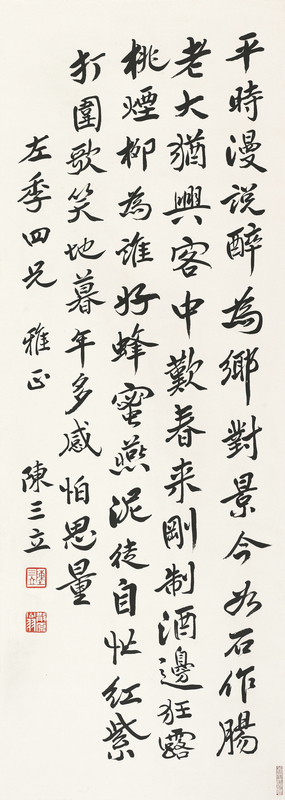 平時漫說醉為鄉對景今如石作腸
老大猶興客中歎春来剛制酒邊狂露
桃煙柳為誰好蜂蜜燕泥徒自忙紅紫
打圍歌笑地暮年多感怕思量
左季四兄 雅正
陳三立